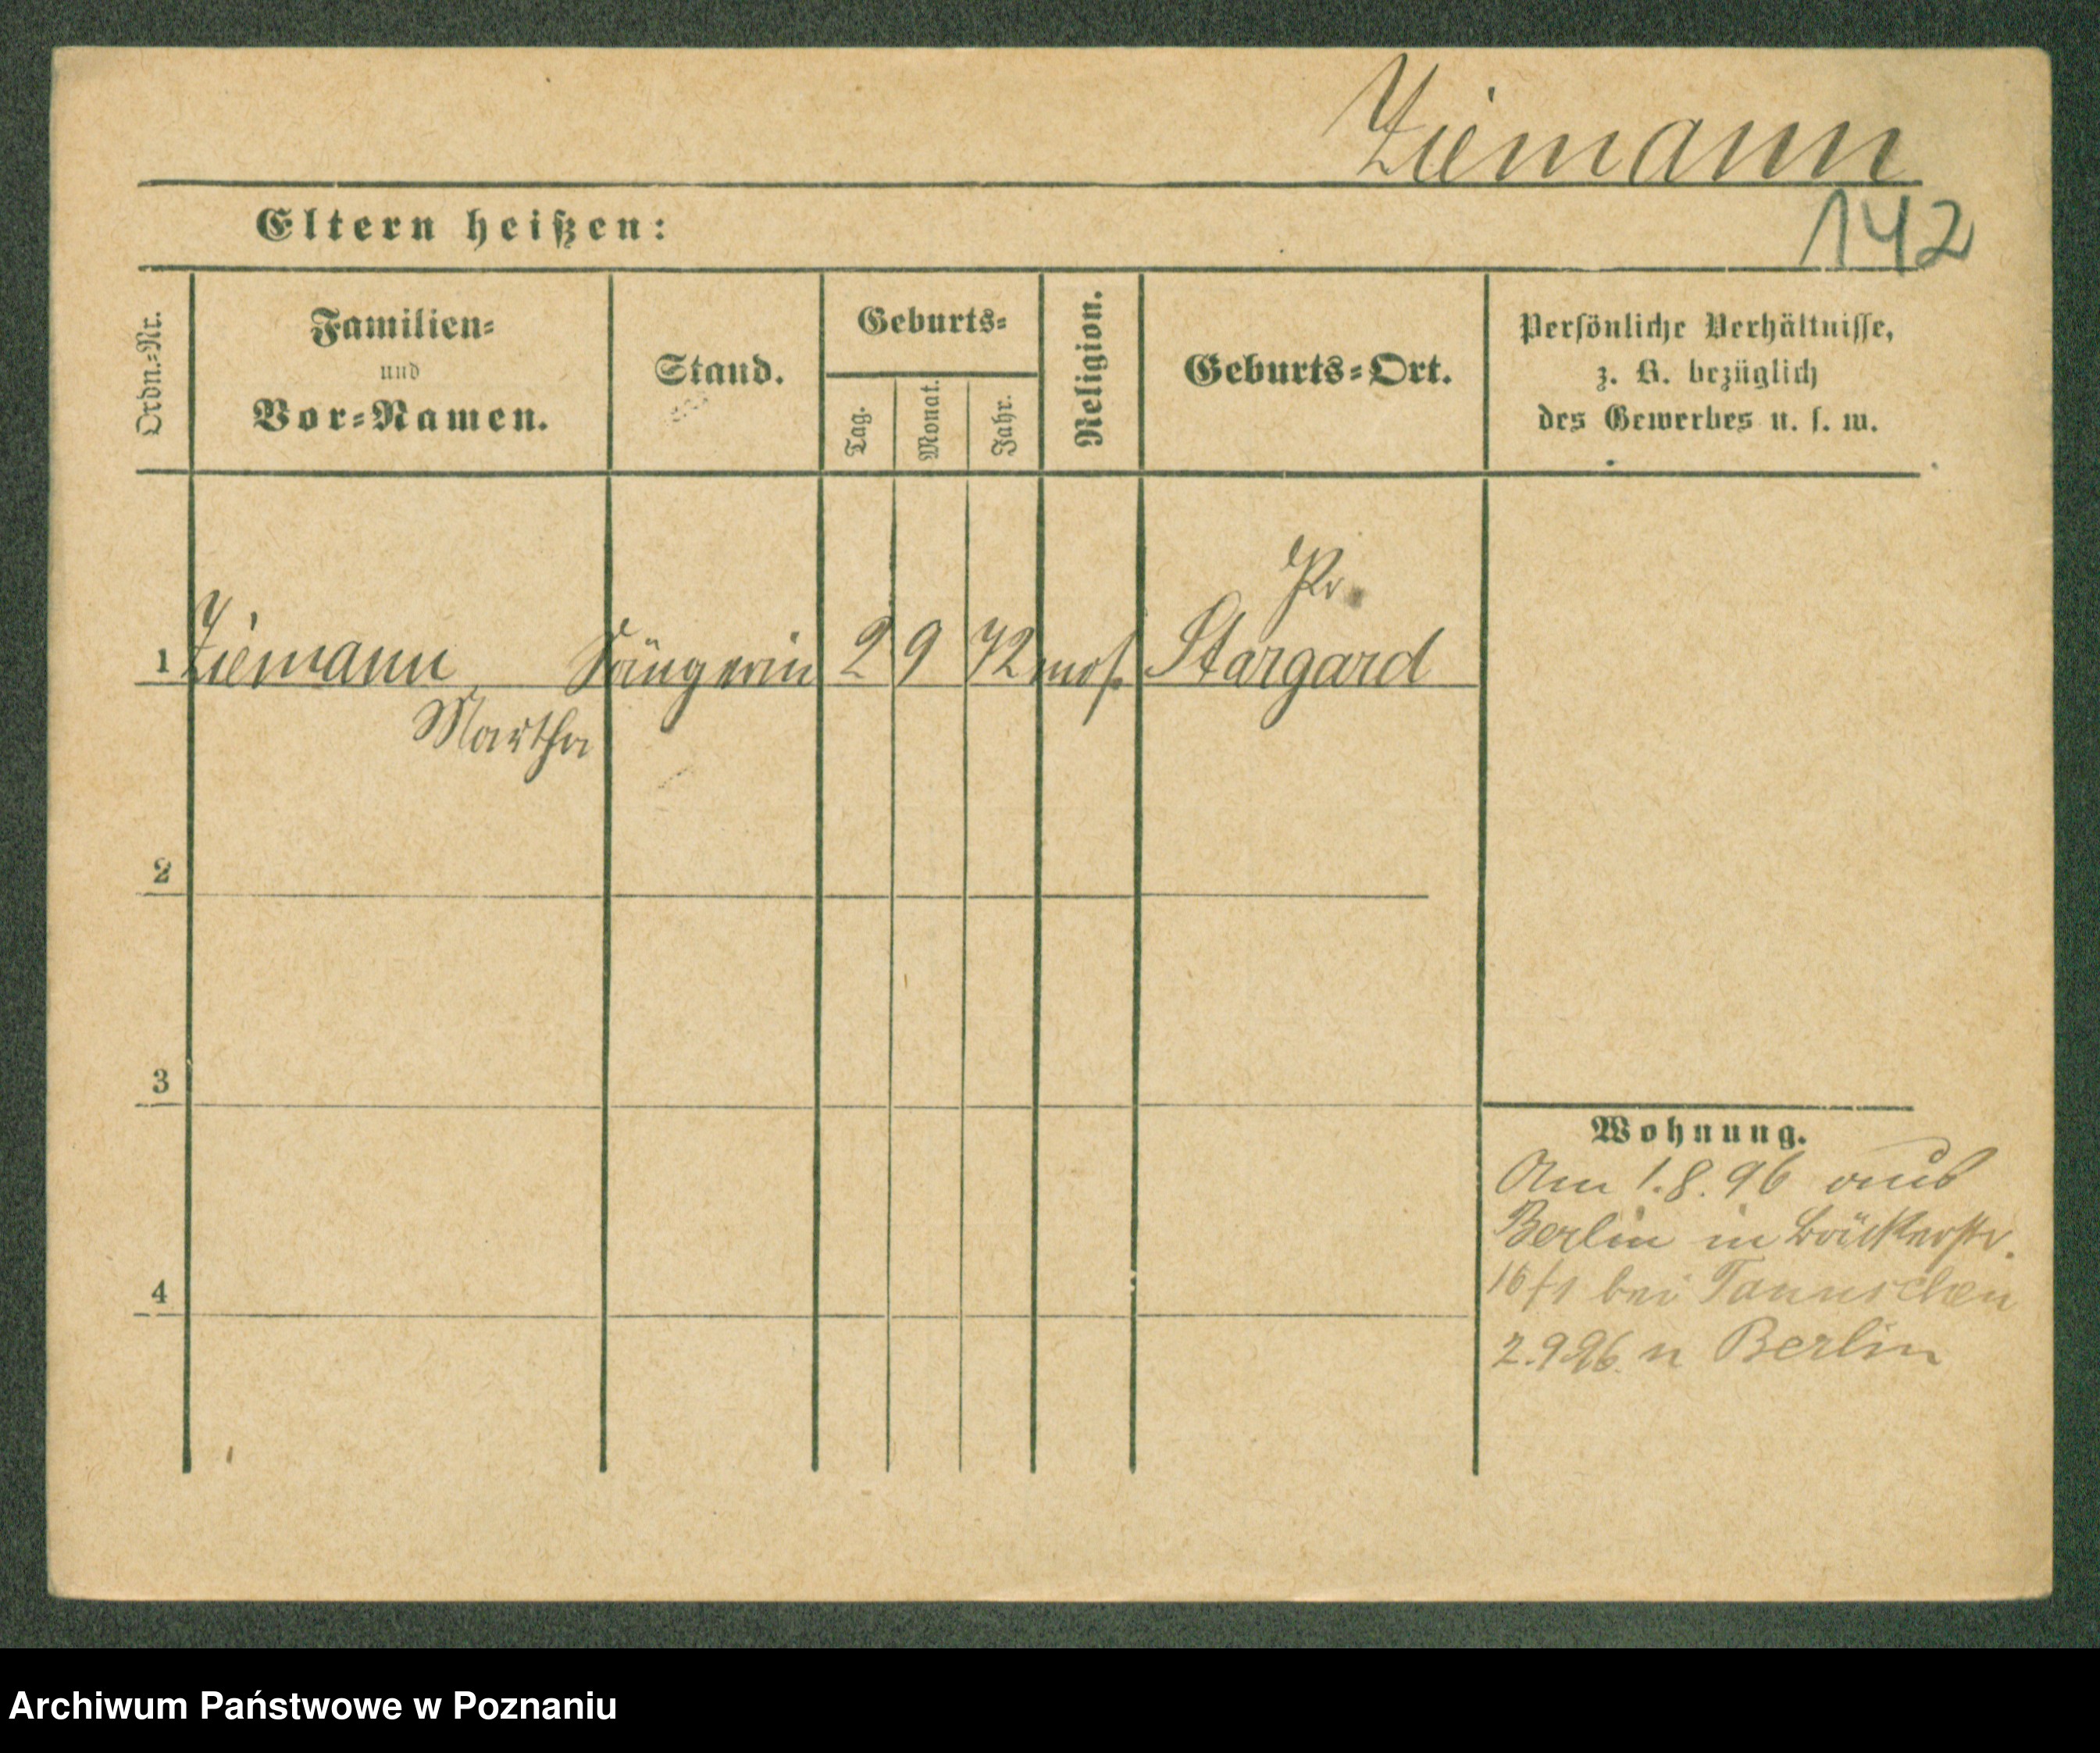 Ziemann
142
Eltern heißen:
Ordn.-Nr.
Familien-
und
Vor-Namen.
Stand.
Geburts-
Tag.
Monat.
Jahr.
Religion.
Geburts-Ort.
Persönliche Verhältnisse,
z. B. bezüglich
des Gewerbes u. s. w.
Pr.
1 Ziemann Sängerin 2 9 72 mos. Stargard
Martha
2
3
4
Wohnung.
Am 1.8.96 aus
Berlin in Bäckerstr.
16/1 bei
2.9.96. n Berlin
Archiwum Państwowe w Poznaniu